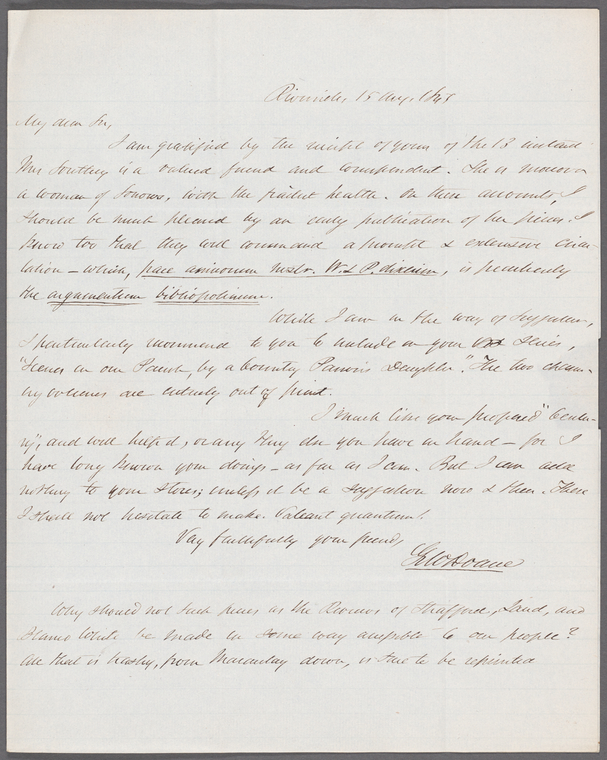 Riverside, 15 Aug. 184
My dear Sir,
I am gratified by the receipt of yours of the 13 instant.
Mrs Southey is a valued friend and correspondent. She is moreover
a woman of sorrows, with the frailest health. On these accounts, I
should be much pleased by an early publication of her pieces. I
know too that they will command a prompt & extensive circu-
lation - which, pace animorum Messr. W. & P. dixerim, is peculiarly
the argumentum bibliopolinum.
While I am in the way of suggestion,
I particularly recommend to you to include in your Series,
"Scenes in our Parish, by a Country Parson's Daughter." The two charm-
ing volumes are entirely out of print.
I much like your proposed "Centu-
ry", and will help it, or any thing else you have in hand - for I
have long known your doings - as far as I can. But I can add
nothing to your stores; unless it be a suggestion now & then. These
I shall not hesitate to make. Valeant quantum!
Very faithfully your friend,
G W Doane
Why should not such pieces as the Reviews of Strafford, Laud, and
Blanco White be made in some way accessible to our people?
All that is trashy, from Macaulay down, is sure to be reprinted